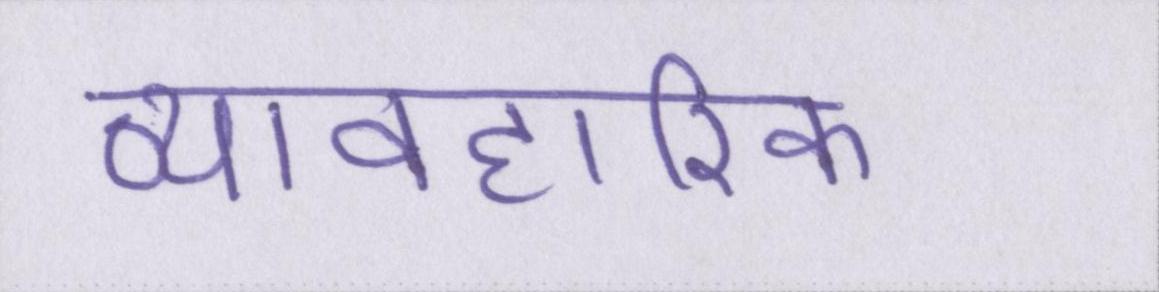 व्यावहारिक